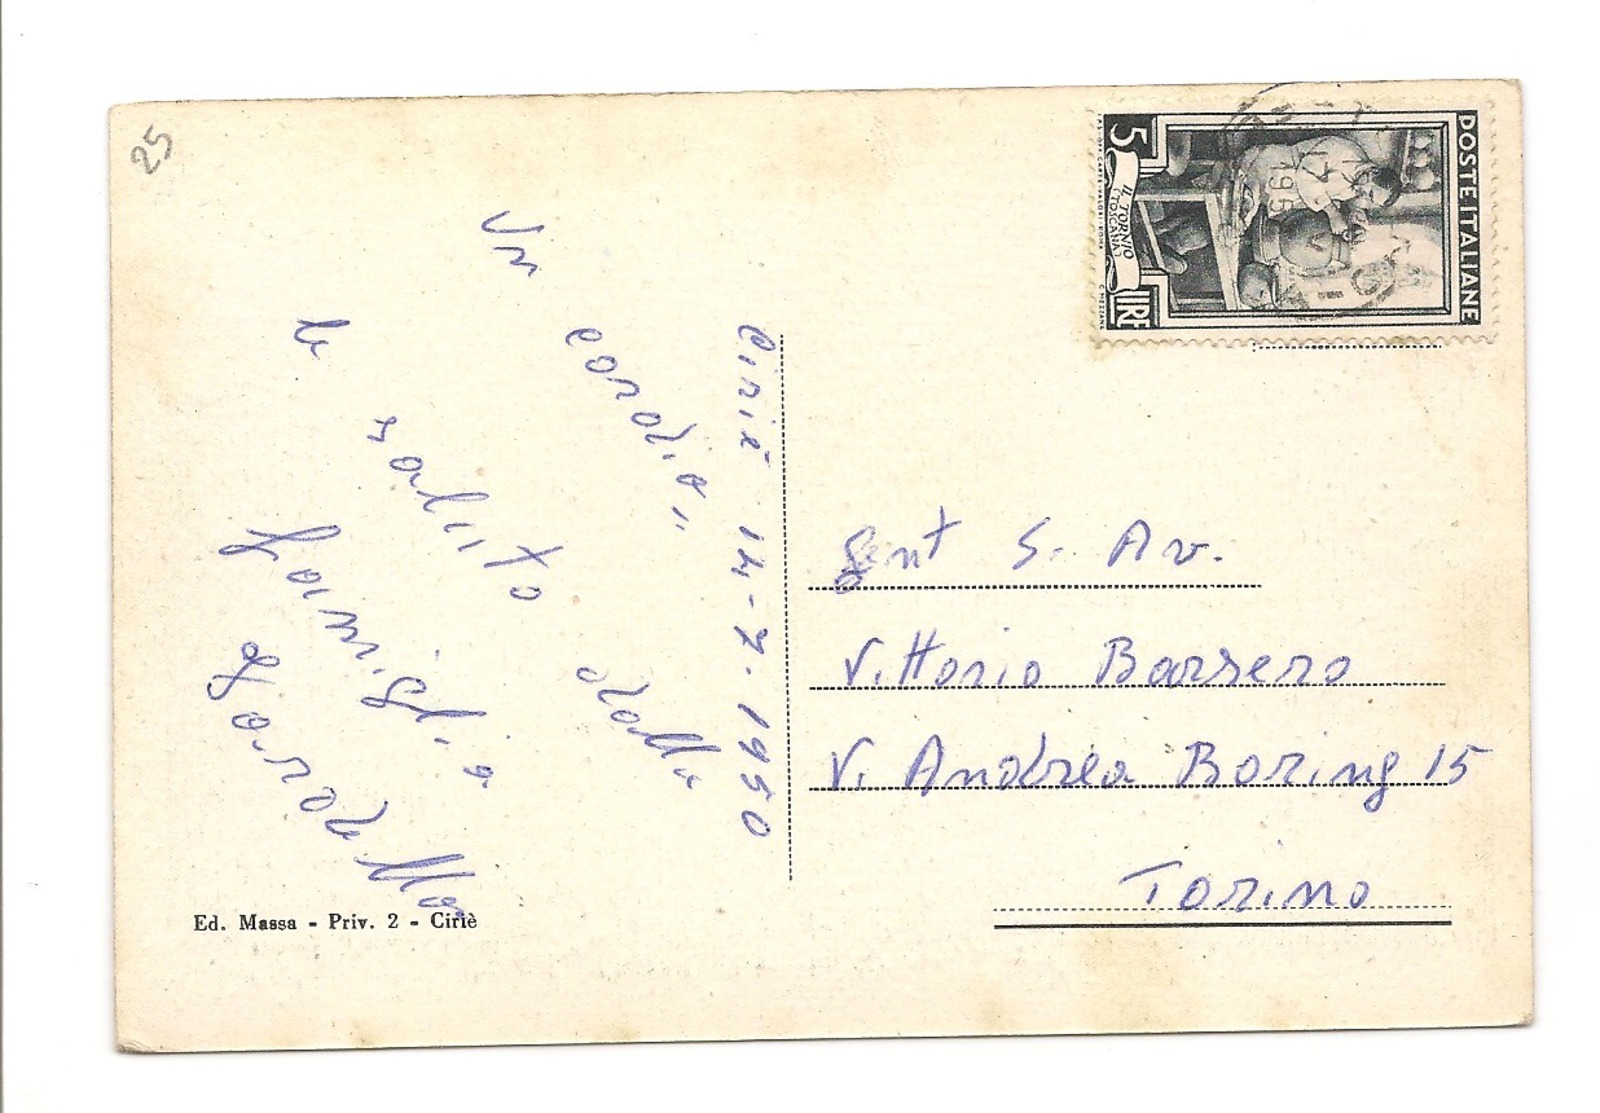 25
POSTE ITALIANE
5
LIRE
IL TORNIO
(TOSCANA)
Ciriè 14-7-1950
Un cordia
le saluto dalla
famiglia
Gent S. Av.
Vittorio Barsero
V. Andrea Boring 15
Torino
Ed. Massa - Priv. 2 - Ciriè